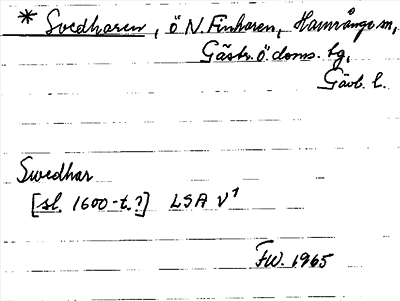 * Svedharen, ö N. Finharen, Hamrånge sn,
Gästr. Ö. doms. tg,
Gävl. l.
Swedhar
[sl. 1600-t.?] LSA V1
FW. 1965